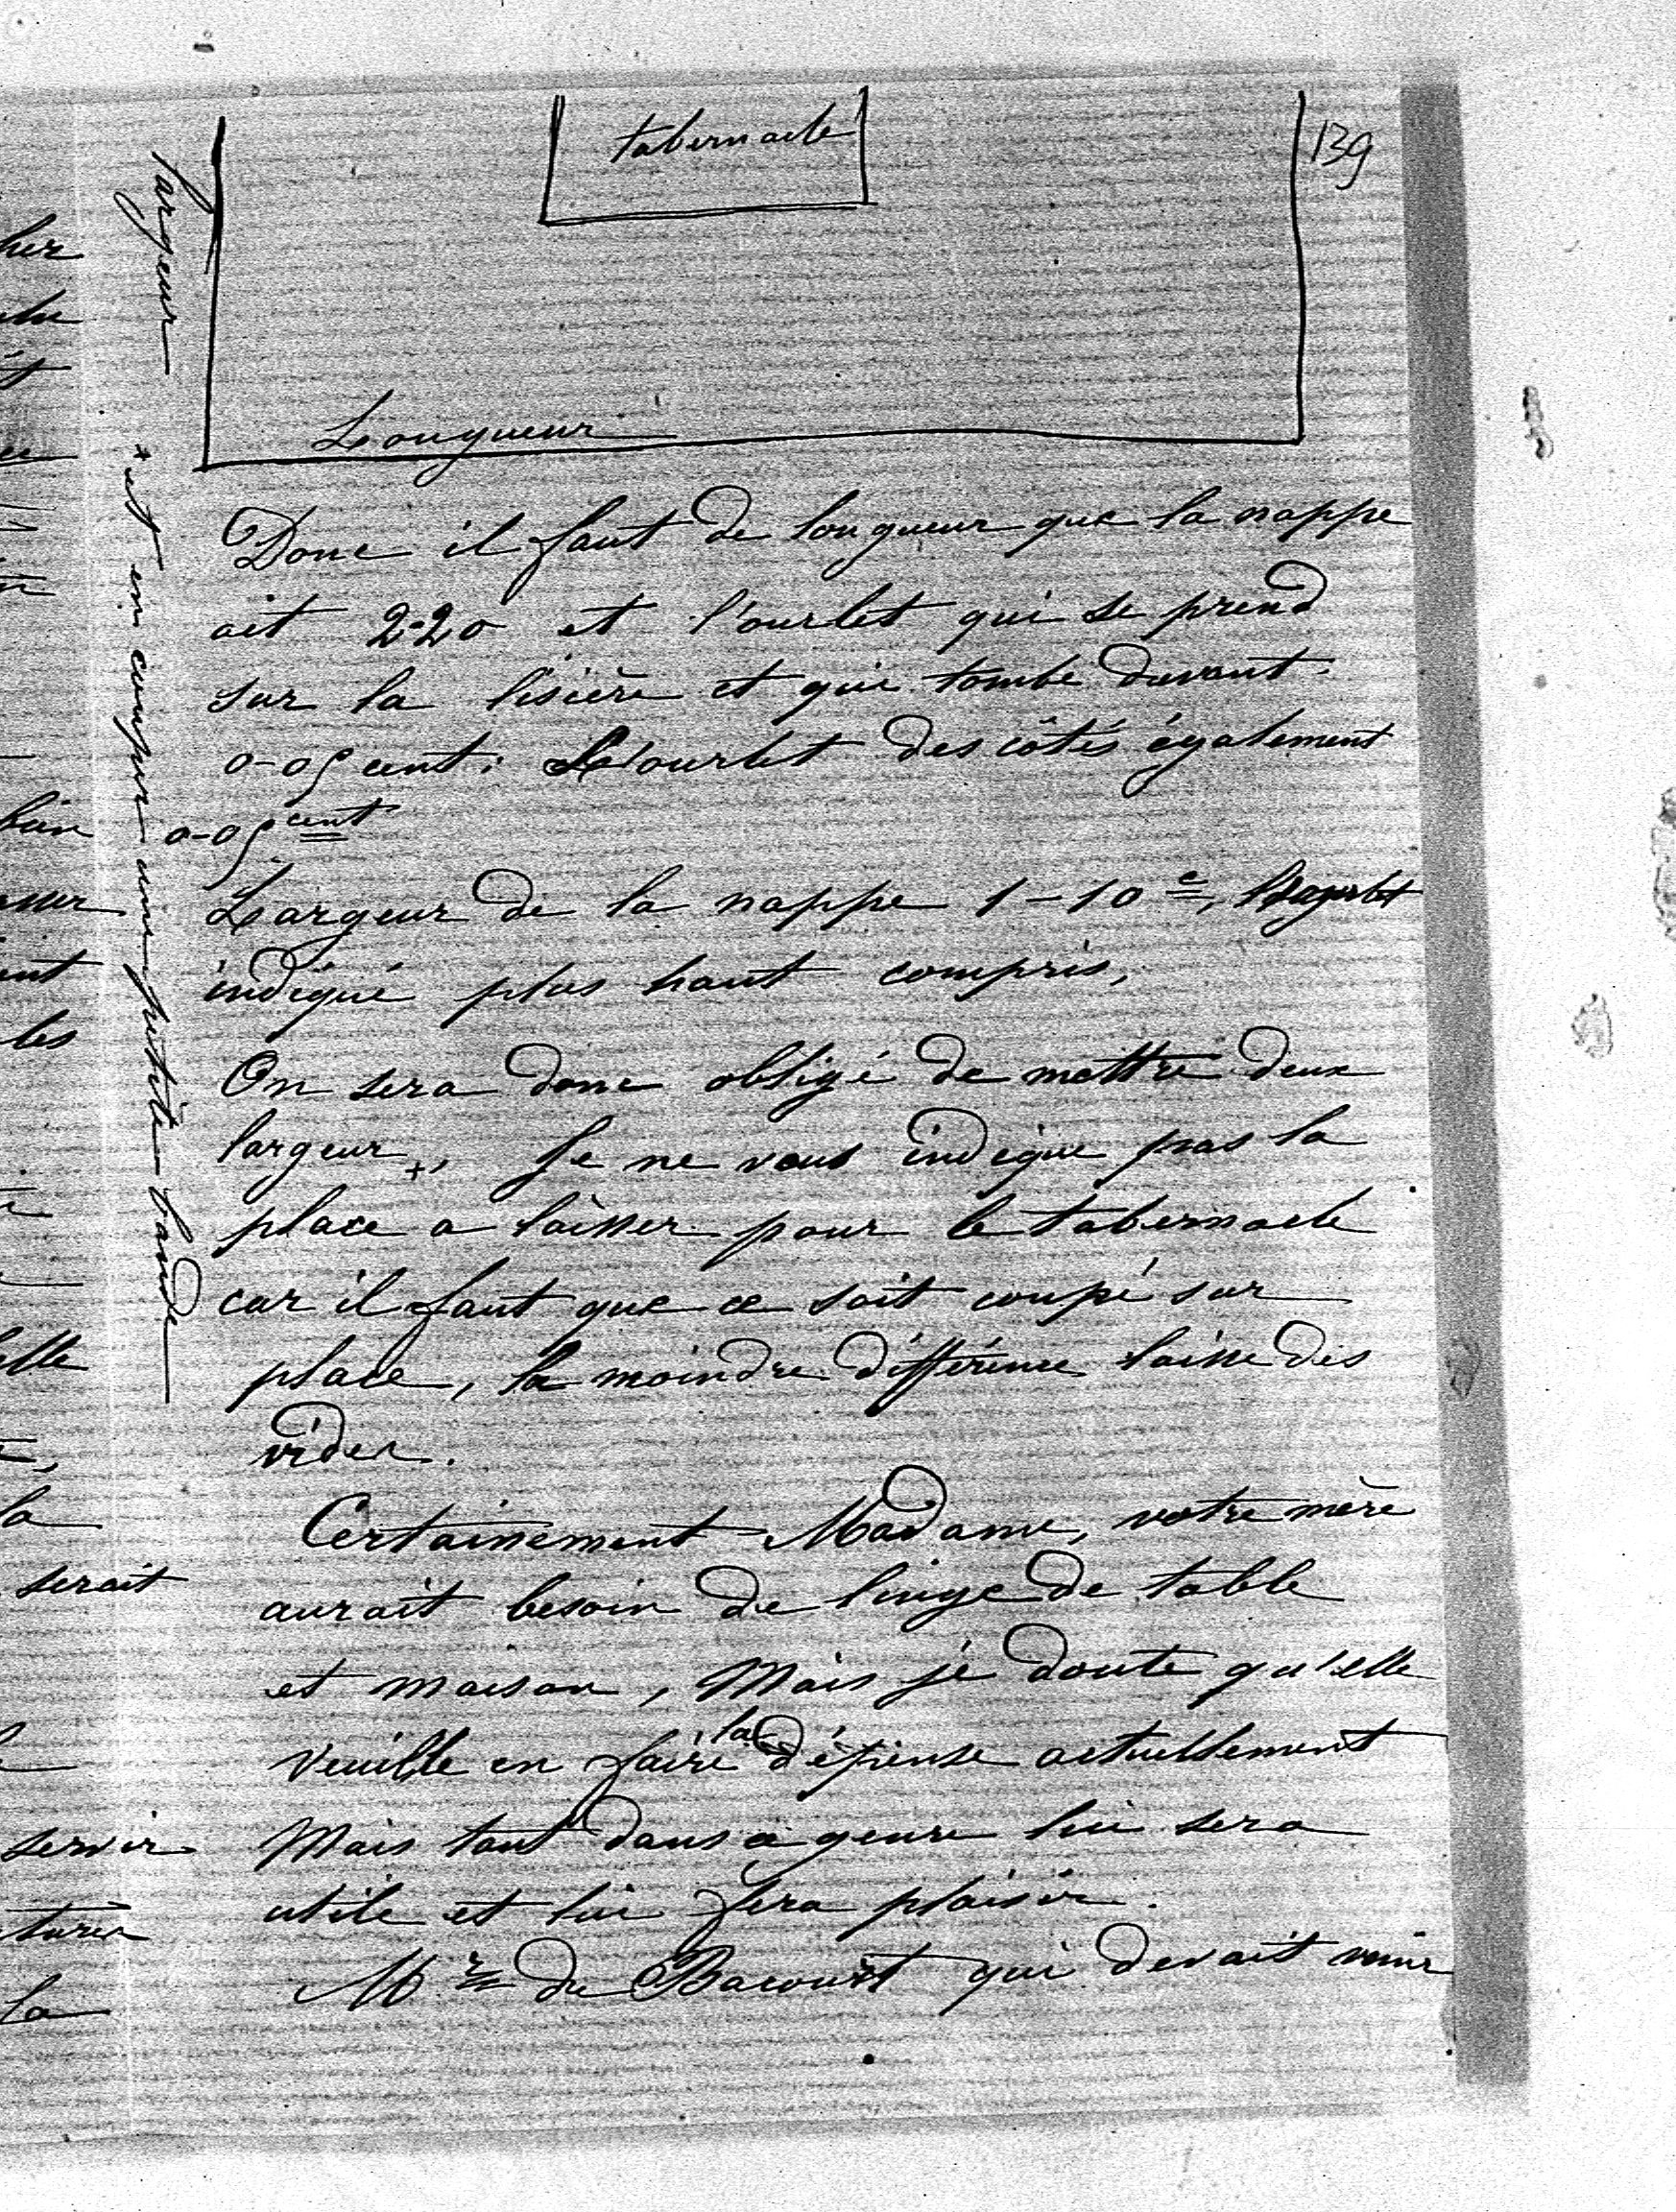 tabernacle
139
largeur
Longueur
Donc il faut de longueur que la nappe
ait 2-20 et l'ourlet qui se prend
sur la lisière et qui tombe devant.
0-05 cent: L'ourlet des côtés également
0-05 cent
Largeur de la nappe 1-10 c, l'ourlet
indiqué plus haut compris,
On sera donc obligé de mettre deux
largeur +, Je ne vous indique pas la
place a laisser pour le tabernacle
car il faut que ce soit coupé sur
place, la moindre différence laisse des
vides.
+ et en couper une petite bande
Certainement Madame, votre mère
aurait besoin de linge de table
et maison, Mais je doute qu'elle
veuille en faire la dépense actuellement
Mais tout dans ce genre lui sera
utile et lui fera plaisir.
Mr de Bacourt qui devait venir
her
les
elle
la
serait
servir
la